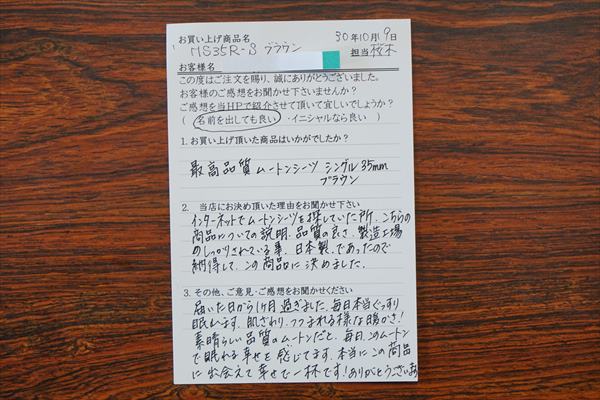 お買い上げ商品名
MS35R-S ブラウン
30年10月9日
担当 桜木
お客様名
この度はご注文を賜り、誠にありがとうございました。
お客様のご感想をお聞かせ下さいませんか？
ご感想を当HPで紹介させて頂いて宜しいでしょうか？
( 名前を出しても良い ・イニシャルなら良い )
1. お買い上げ頂いた商品はいかがでしたか？
最高品質 ムートンシーツ シングル 35mm
ブラウン
2. 当店にお決め頂いた理由をお聞かせ下さい
インターネットでムートンシーツを探していた所、こちらの
商品についての説明、品質の良さ、製造工場
のしっかりされている事、日本製、であったので
納得して、この商品に決めました。
3. その他、ご意見・ご感想をお聞かせください
届いた日から1ヶ月過ぎました。毎日本当ぐっすり
眠れます。肌ざわり、つつまれる様な暖かさ!
素晴らしい品質のムートンだと、毎日、このムートン
で眠れる幸せを感じてます。本当にこの商品
に出会えて幸せで一杯です!ありがとうございま